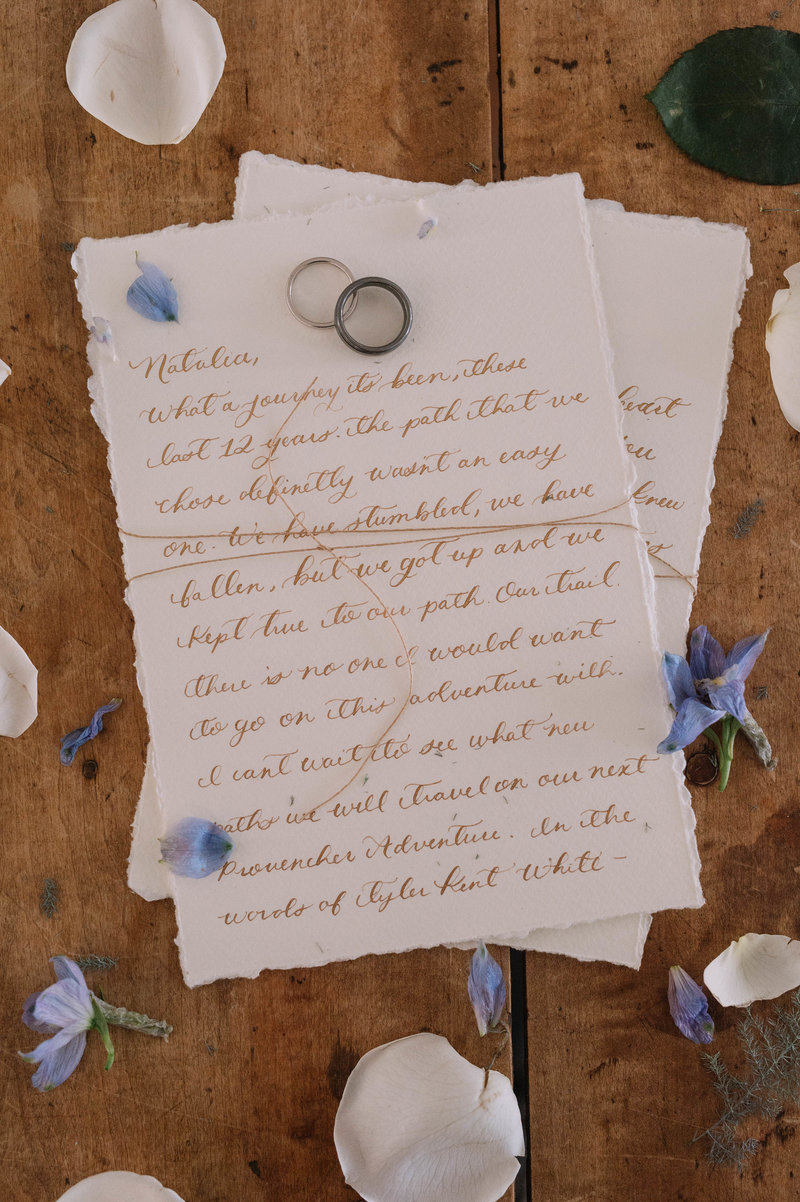 Natalia,
What a journey its been, these
last 12 years. the path that we
chose definetly wasn't an easy
one. We have stumbled, we have
fallen, but we got up and we
kept true to our path. Our trail.
there is no one I would want
to go on this adventure with.
I cant wait to see what new
paths we will travel on our next
Provencher Adventure. In the
words of Tyler Kent White –
heart
you
knew